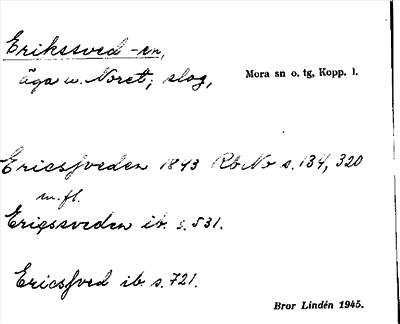 Erikssved -en,
äga u. Noret; slog, Mora sn o. tg, Kopp. l.
Ericsfveden 1843 Rb No s. 134, 320
m.fl.
Erigssveden ib. s. 531.
Ericsfved ib. s. 721.
Bror Lindén 1945.